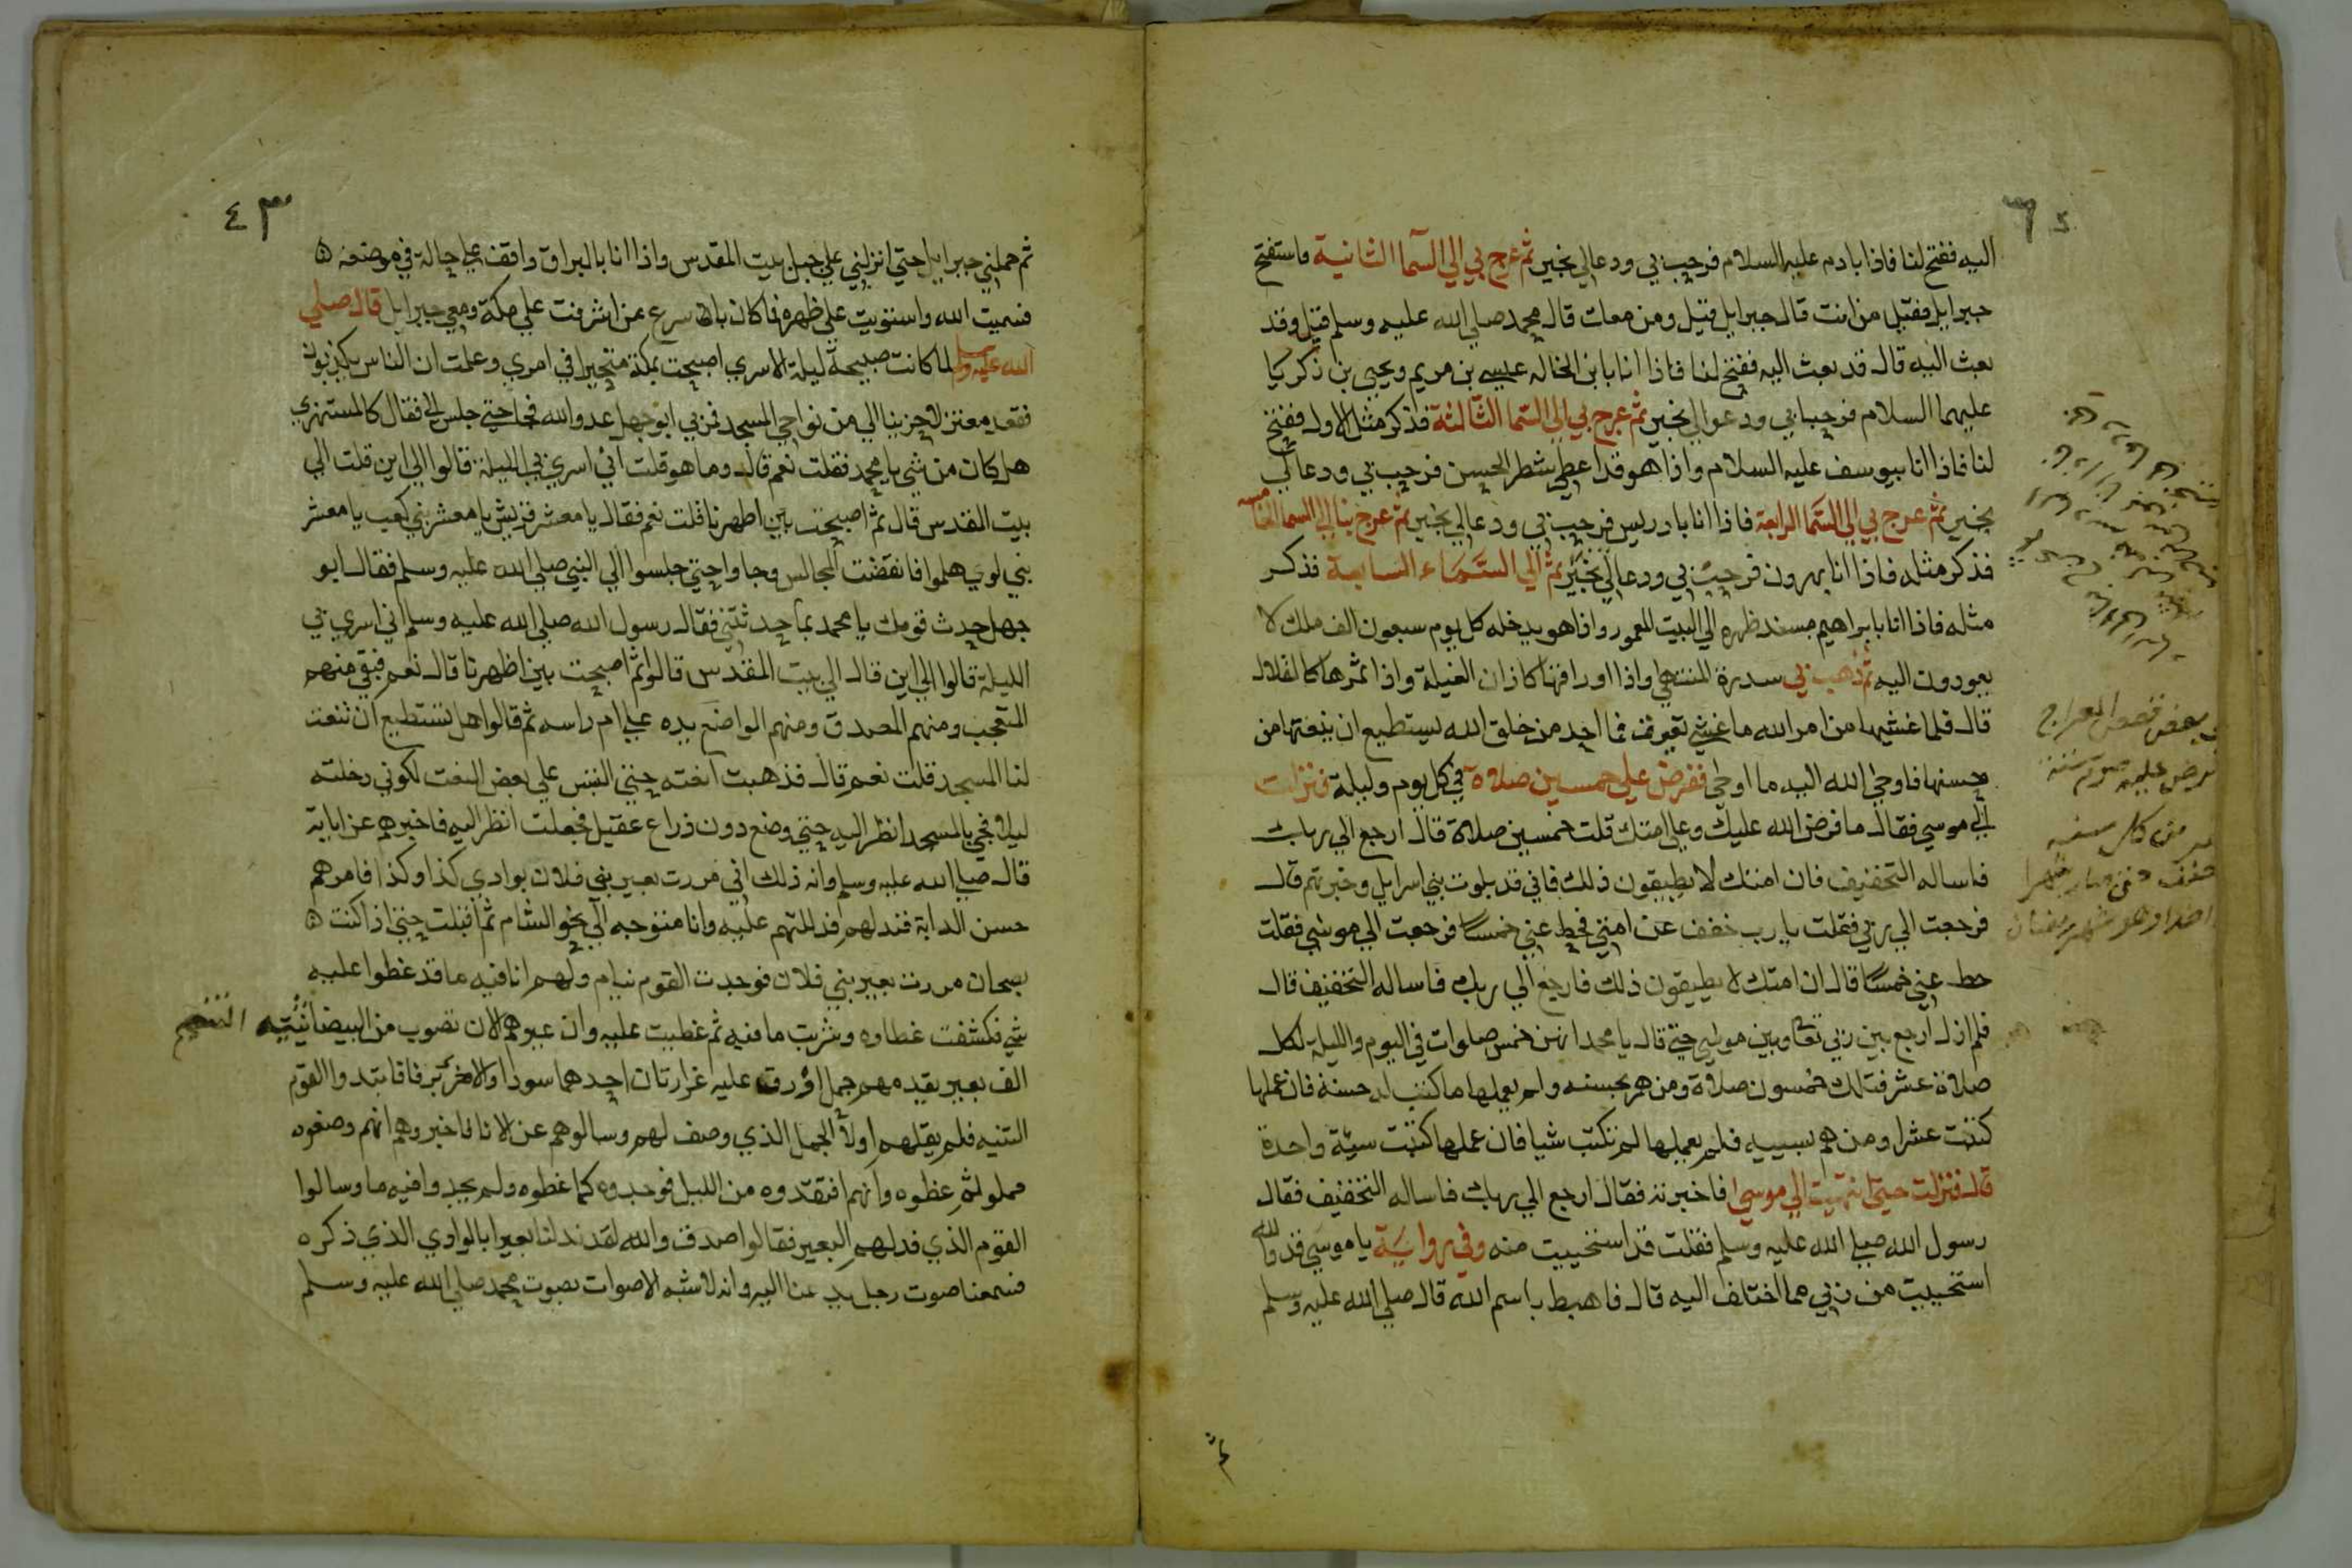 اليه ففتح لنا فاذا بادم عليه السلام فرحب بي ودعا لي بخير ثم عرج بي الي السما الثانية فاستفتح
جبرايل فقيل من انت قال جبرايل قيل ومن معك قال محمد صلي الله عليه وسلم قيل وقد
بعث اليه قال قد بعث اليه ففتح لنا فاذا انا بابن الخاله عيسي بن مريم ويحيي بن زكريا
عليهما السلام فرحبا بي ودعوا لي بخير ثم عرج بي الي السما الثالثة فذكر مثل الاول ففتح
لنا فاذا انا بيوسف عليه السلام واذا هو قد اعطي شطر الحسن فرحب بي ودعا لي
بخير ثم عرج بي الي السما الرابعة فاذا انا بادريس فرحب بي ودعا لي بخير ثم عرج بنا الي السما الخامسه
فذكر مثله فاذا انا بهرون فرحب بي ودعا لي بخير ثم الي السماء السابعة فذكر
مثله فاذا انا بابراهيم مسند ظهره الي البيت المعمور واذا هو يدخله كل يوم سبعون الف ملك لا
يعودون اليه ثم ذهب بي سدرة المنتهي واذا اوراقها كاذان الفيلة واذا ثمرها كالقلال
قال فلما غشيها من امر الله ما غشي تغيرت فما احد من خلق الله يستطيع ان ينعتها من
حسنها فاوحي الله اليه ما اوحي ففرض علي خمسين صلاة في كل يوم وليلة فنزلت
الي موسي فقال ما فرض الله عليك وعلي امتك قلت خمسين صلاة قال ارجع الي ربك
فاساله التخفيف فان امتك لا يطيقون ذلك فاني قد بلوت بني اسرايل وخبرتهم قال
فرجعت الي ربي فقلت يا رب خفف عن امتي فحط عني خمسا فرجعت الي موسي فقلت
حط عني خمسا قال ان امتك لا يطيقون ذلك فارجع الي ربك فاساله التخفيف قال
فلم ازل ارجع بين ربي تعالي وبين موسي حتي قال يا محمد انهن خمس صلوات في اليوم والليلة لكل
صلاة عشر فتلك خمسون صلاة ومن هم بحسنه ولم يعملها كتبت له حسنة فان عملها
كتبت عشرا ومن هم بسييه فلم يعملها لم تكتب شيا فان عملها كتبت سيئة واحدة
قال فنزلت حتي انتهيت الي موسي فاخبرته فقال ارجع الي ربك فاساله التخفيف فقال
رسول الله صلي الله عليه وسلم فقلت قد استحييت منه وفي رواية يا موسي قد والله
استحييت من ربي مما اختلف اليه قال فاهبط باسم الله قال صلي الله عليه وسلم
ثم
بعض قصص المعراج
فرض عليه صوم سنة
من كل سنه
شهرا
وهو شهر رمضان
٤٣
ثم حملني جبرايل حتي انزلني علي جبل بيت المقدس واذا انا بالبراق واقف علي حاله في موضعه ه
فسميت الله واستويت علي ظهره فما كان باسرع من ان اشرفت علي مكة ومعي جبرايل قال صلي
الله عليه وسلم لما كانت صبيحة ليلة الاسري اصبحت بمكة متحيرا في امري وعلمت ان الناس يكذبون
فقعد معتزلا حزينا الي من نواحي المسجد فمر بي ابو جهل عدو الله فجا حتي جلس الي فقال كالمستهزي
هل كان من شي يا محمد فقلت نعم قال وما هو قلت اني اسري بي الليلة قالوا الي اين قلت الي
بيت المقدس قال ثم اصبحت بين اظهرنا قلت نعم فقال يا معشر قريش يا معشر بني كعب يا معشر
بني لوي هلموا فانقضت المجالس وجاوا حتي جلسوا الي النبي صلي الله عليه وسلم فقال ابو
جهل حدث قومك يا محمد بما حدثتني فقال رسول الله صلي الله عليه وسلم اني اسري بي
الليلة قالوا الي اين قال الي بيت المقدس قالوا ثم اصبحت بين اظهرنا قال نعم فبقي منهم
المتعجب ومنهم المصدق ومنهم الواضع يده علي ام راسه ثم قالوا هل تستطيع ان تنعت
لنا المسجد قلت نعم قال فذهبت انعته حتي التبس علي بعض النعت لكوني دخلته
ليلا فجي بالمسجد انظر اليه حتي وضع دون ذراع عقيل فجعلت انظر اليه فاخبرهم عن اياته
قال صلي الله عليه وسلم وانه ذلك اني مررت بعير بني فلان بوادي كذا وكذا فامرهم
حسن الدابة فند لهم فدللتهم عليه وانا متوجه الي نحو الشام ثم اقبلت حتي اذا كنت ه
بصحان مررت بعير بني فلان فوجدت القوم نيام ولهم انا فيه ما قد غطوا عليه
شي فكشفت غطاوه وشربت ما فيه ثم غطيت عليه وان عيرهم الان تصوب من البيضا ثنيه التنعيم
الف بعير يقدمهم جمل اورق عليه غرارتان احدهما سودا والاخري برقا فابتدوا القوم
الثنيه فلم يقلهم اولا الجمل الذي وصف لهم وسالوهم عن الانا فاخبروهم انهم وضعوه
مملو ثم غطوه وانهم افتقدوه من الليل فوجدوه كما غطوه ولم يجدوا فيه ما وسالوا
القوم الذي فد لهم البعير فقالوا صدق والله لقد ند لنا بعيرا بالوادي الذي ذكره
فسمعنا صوت رجل يدعنا اليه وانه لاشبه الاصوات بصوت محمد صلي الله عليه وسلم